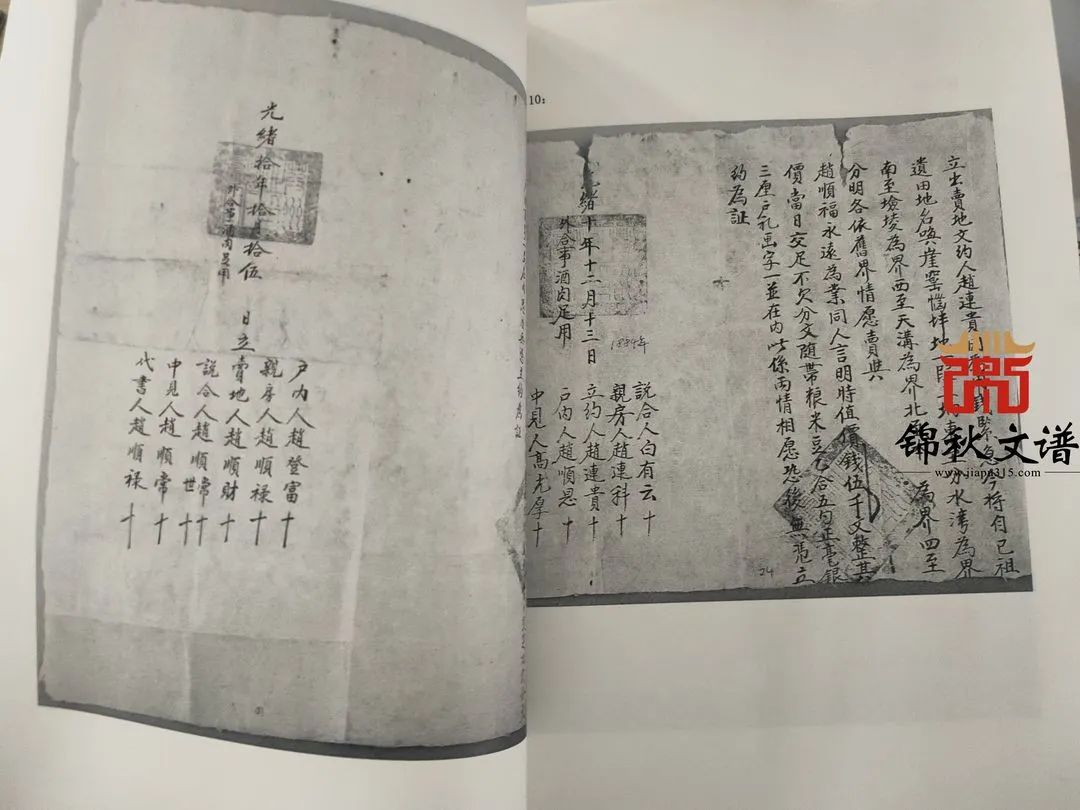 光緒拾年拾月拾伍日立
外合事酒肉足用
戶内人趙登富十
親房人趙順祿十
賣地人趙順財十
説合人趙順常十
世十
中見人趙順常十
代書人趙順祿十
10:
立出賣地文約人趙連貴因
今将自己祖
遺田地名喚崖窰
坪地一段
水溝為界
南至塄塄為界西至天溝為界北
為界四至
分明各依舊界情愿賣與
趙順福永遠為業同人言明時值價錢伍千文整其
價當日交足不欠分文随帶粮米豆乙合五勺正毫銀
三厘户礼画字一並在内此係両情相愿恐後無憑立
約為証
緒十年十二月十三日
外合事酒肉足用
1884年
説合人白有云十
親房人趙連科十
立約人趙連貴十
户内人趙順恩十
中見人高光厚十
24
锦秋文谱
www.jiapu315.com